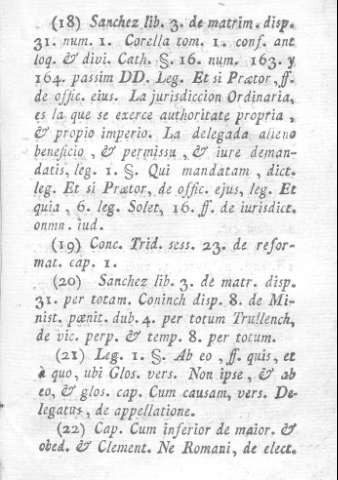 (18) Sanchez lib. 3. de matrim. disp.
31. num. 1. Corella tom. 1. conf. ant
loq. & divi. Cath. §. 16. num. 163. y
164. passim DD. Leg. Et si Prætor, ff.
de offic. eius. La jurisdiccion Ordinaria,
es la que se exerce authoritate propria,
& proprio imperio. La delegada alieno
beneficio, & permissu, & iure deman-
datis, leg. 1. §. Qui mandatam, dict.
leg. Et si Prætor, de offic. ejus, leg. Et
quia, 6. leg. Solet, 16. ff. de iurisdict.
onmn. iud.
(19) Conc. Trid. sess. 23. de refor-
mat. cap. 1.
(20) Sanchez lib. 3. de matr. disp.
31. per totam. Coninch disp. 8. de Mi-
nist. pænit. dub. 4. per totum Trullench,
de vic. perp. & temp. 8. per totum.
(21) Leg. 1. §. Ab eo, ff. quis, et
à quo, ubi Glos. vers. Non ipse, & ab
eo, & glos. cap. Cum causam, vers. De-
legatus, de appellatione.
(22) Cap. Cum inferior de maior. &
obed. & Clement. Ne Romani, de elect.